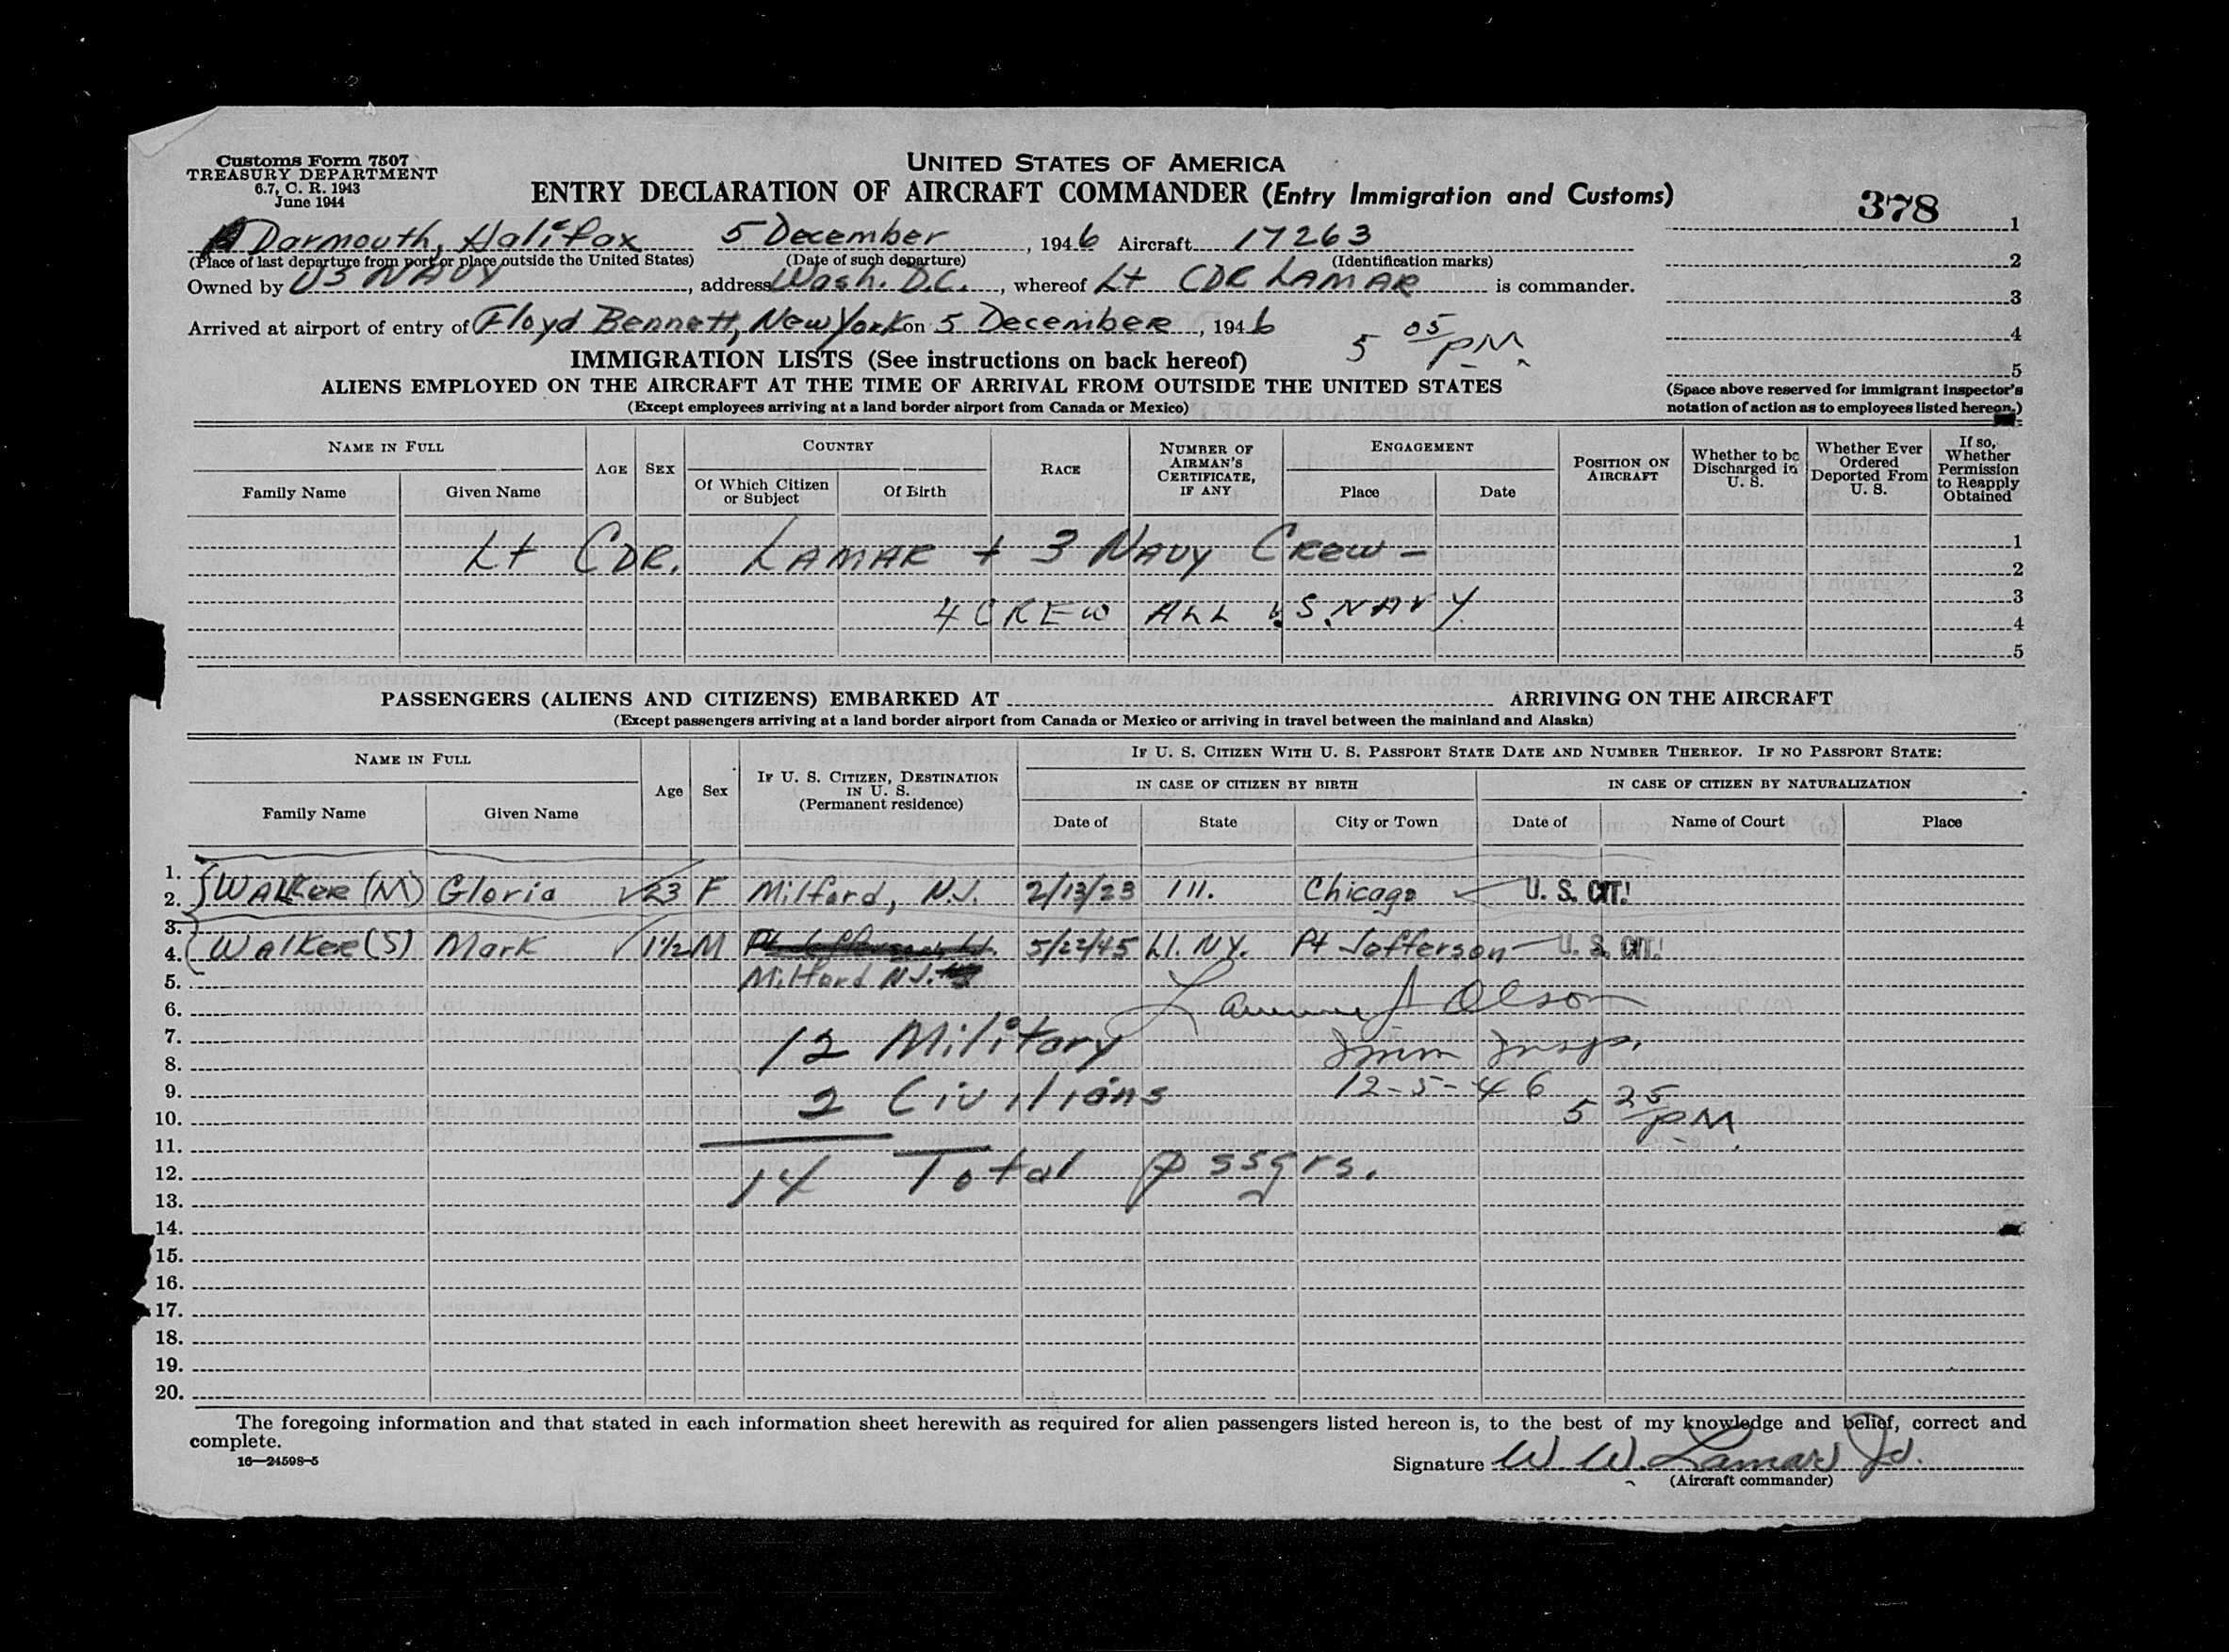 Customs Form 7507
TREASURY DEPARTMENT
6.7, C. R. 1943
June 1944
UNITED STATES OF AMERICA
ENTRY DECLARATION OF AIRCRAFT COMMANDER (Entry Immigration and Customs)
378
Darmouth, Halifax 5 December, 1946 Aircraft 17263
(Place of last departure from port or place outside the United States) (Date of such departure) (Identification marks)
Owned by US NAVY, address Wash. D.C., whereof Lt CDR LAMAR is commander.
Arrived at airport of entry of Floyd Bennett, New York on 5 December, 1946
5 05 PM
1
2
3
4
5
(Space above reserved for immigrant inspector's notation of action as to employees listed hereon.)
IMMIGRATION LISTS (See instructions on back hereof)
ALIENS EMPLOYED ON THE AIRCRAFT AT THE TIME OF ARRIVAL FROM OUTSIDE THE UNITED STATES
(Except employees arriving at a land border airport from Canada or Mexico)
NAME IN FULL
Family Name Given Name
AGE SEX
COUNTRY
Of Which Citizen or Subject Of Birth
RACE
NUMBER OF AIRMAN'S CERTIFICATE, IF ANY
ENGAGEMENT
Place Date
POSITION ON AIRCRAFT
Whether to be Discharged in U. S.
Whether Ever Ordered Deported From U. S.
If so, Whether Permission to Reapply Obtained
Lt CDR. LAMAR + 3 NAVY CREW - 1
2
4 CREW ALL U.S. NAVY 3
4
5
PASSENGERS (ALIENS AND CITIZENS) EMBARKED AT ARRIVING ON THE AIRCRAFT
(Except passengers arriving at a land border airport from Canada or Mexico or arriving in travel between the mainland and Alaska)
NAME IN FULL
Family Name Given Name
Age Sex
IF U. S. CITIZEN, DESTINATION IN U. S. (Permanent residence)
IF U. S. CITIZEN WITH U. S. PASSPORT STATE DATE AND NUMBER THEREOF. IF NO PASSPORT STATE:
IN CASE OF CITIZEN BY BIRTH IN CASE OF CITIZEN BY NATURALIZATION
Date of State City or Town Date of Name of Court Place
1.
2. WALKER (M) Gloria 23 F Milford, N.J. 2/13/23 Ill. Chicago U. S. CIT!
3.
4. Walker (S) Mark 1½ M 5/22/45 LI. NY. Pt Jefferson U. S. CIT!
5. Milford N.J.
6. Olson
7. 12 Military Imm Insp.
8.
9. 2 Civilians 12-5-46
10. 5 25 PM.
11.
12. 14 Total pssgrs.
13.
14.
15.
16.
17.
18.
19.
20.
The foregoing information and that stated in each information sheet herewith as required for alien passengers listed hereon is, to the best of my knowledge and belief, correct and
complete.
16—24598-5
Signature W. W. Lamar Jr.
(Aircraft commander)